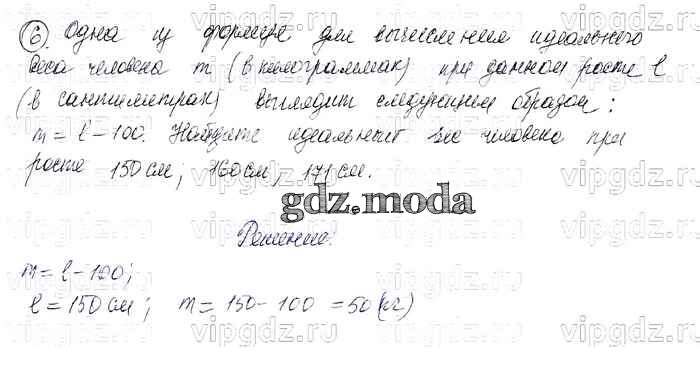 6. Одна из формул для вычисления идеального
веса человека m (в килограммах) при данном росте l
(в сантиметрах) выглядит следующим образом:
m = l - 100. Найдите идеальный вес человека при
росте 150 см; 160 см; 171 см.
gdz.moda
Решение:
m = l - 100;
l = 150 см; m = 150 - 100 = 50 (кг)
vipgdz.ru